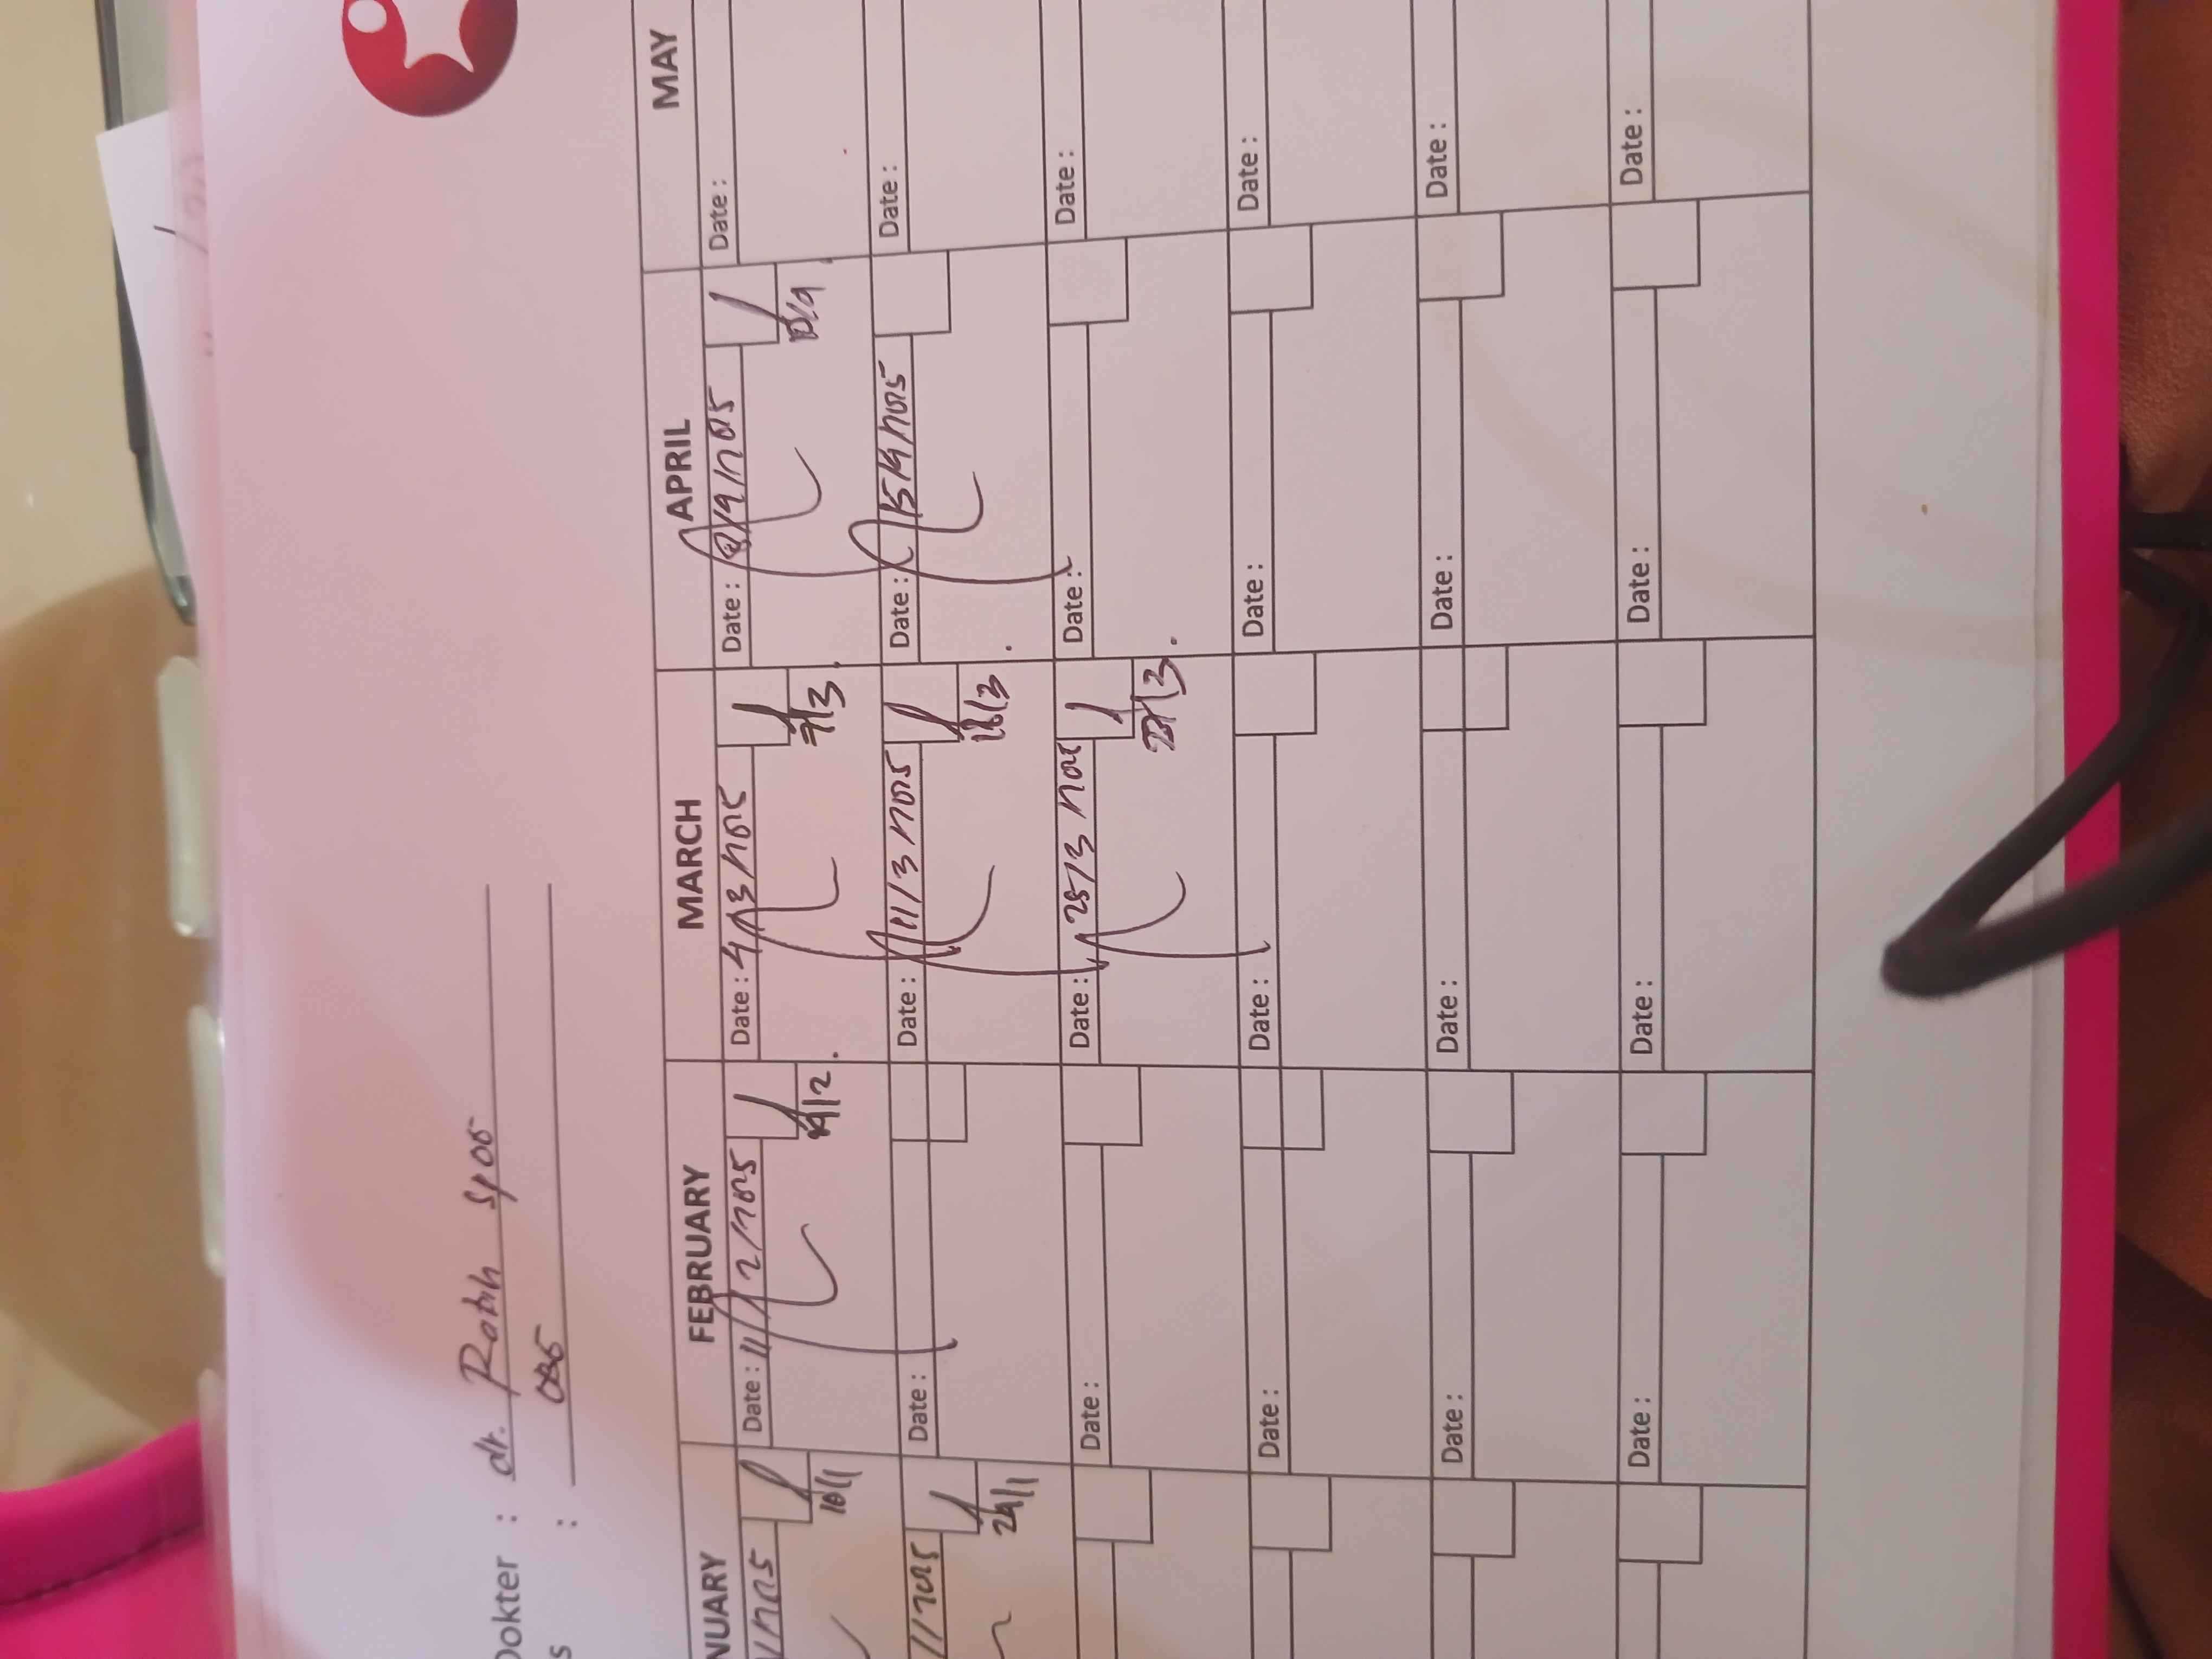 Dokter : dr. Ratih SpOG
s : OBS
NUARY FEBRUARY MARCH APRIL MAY
1/2025 Date : 11/2/2025 Date : 4/3/2025 Date : 8/4/2025 Date :
10/1 14/2 7/3 10/4
1/2025 Date : Date : 11/3/2025 Date : 15/4/2025 Date :
24/1 18/3
Date : Date : 25/3/2025 Date : Date :
27/3
Date : Date : Date : Date :
Date : Date : Date : Date :
Date : Date : Date : Date :